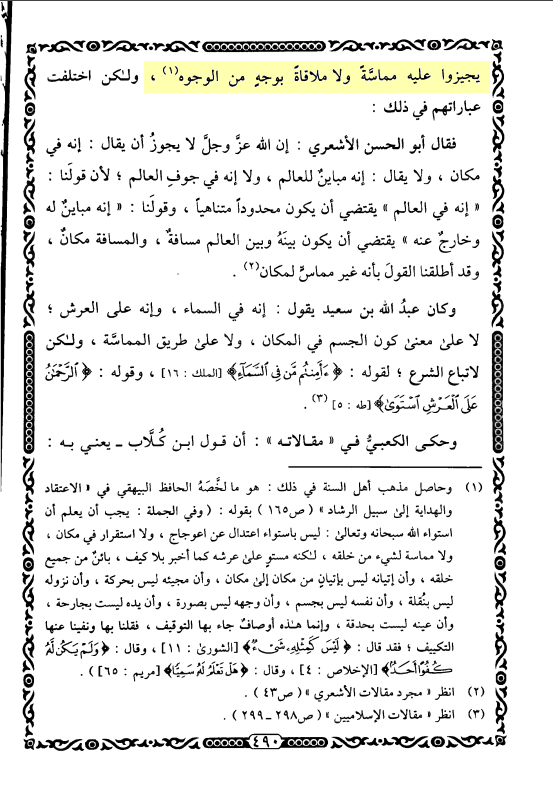 يجيزوا عليه مماسَّةً ولا ملاقاةً بوجهٍ من الوجوه(١) ، ولكن اختلفت
عباراتهم في ذلك :
فقال أبو الحسن الأشعري : إن الله عزَّ وجلَّ لا يجوزُ أن يقال : إنه في
مكان ، ولا يقال : إنه مباينٌ للعالم ، ولا إنه في جوفِ العالم ؛ لأن قولَنا :
« إنه في العالم » يقتضي أن يكون محدوداً متناهياً ، وقولَنا : « إنه مباينٌ له
وخارجٌ عنه » يقتضي أن يكون بينَهُ وبين العالم مسافةٌ ، والمسافة مكانٌ ،
وقد أطلقنا القولَ بأنه غير مماسٍّ لمكان(٢) .
وكان عبدُ الله بن سعيد يقول : إنه في السماء ، وإنه على العرش ؛
لا علىٰ معنىٰ كون الجسم في المكان ، ولا علىٰ طريق المماسَّة ، ولكن
لاتباع الشرع ؛ لقوله : ﴿ ءَأَمِنتُم مَّن فِي السَّمَآءِ﴾ [الملك : ١٦] ، وقوله : ﴿ الرَّحْمَٰنُ
عَلَى الْعَرْشِ اسْتَوَىٰ﴾ [طه : ٥] (٣) .
وحكى الكعبيُّ في « مقالاته » : أن قول ابن كُلَّاب ـ يعني به :
(١) وحاصل مذهب أهل السنة في ذلك : هو ما لخَّصَهُ الحافظ البيهقي في « الاعتقاد
والهداية إلىٰ سبيل الرشاد » ( ص١٦٥ ) بقوله : ( وفي الجملة : يجب أن يعلم أن
استواء الله سبحانه وتعالىٰ : ليس باستواء اعتدال عن اعوجاج ، ولا استقرار في مكان ،
ولا مماسة لشيء من خلقه ، لكنه مستوٍ علىٰ عرشه كما أخبر بلا كيف ، بائنٌ من جميع
خلقه ، وأن إتيانه ليس بإتيانٍ من مكان إلىٰ مكان ، وأن مجيئه ليس بحركة ، وأن نزوله
ليس بنُقلة ، وأن نفسه ليس بجسم ، وأن وجهه ليس بصورة ، وأن يده ليست بجارحة ،
وأن عينه ليست بحدقة ، وإنما هذه أوصافٌ جاء بها التوقيف ، فقلنا بها ونفينا عنها
التكييف ؛ فقد قال : ﴿ لَيْسَ كَمِثْلِهِ شَيْءٌ ﴾ [الشورىٰ : ١١] ، وقال : ﴿ وَلَمْ يَكُن لَّهُ
كُفُوًا أَحَدٌ﴾ [الإخلاص : ٤] ، وقال : ﴿ هَلْ تَعْلَمُ لَهُ سَمِيًّا﴾ [مريم : ٦٥] ) .
(٢) انظر « مجرد مقالات الأشعري » ( ص٤٣ ) .
(٣) انظر « مقالات الإسلاميين » ( ص٢٩٨ ـ ٢٩٩ ) .
٤٩٠